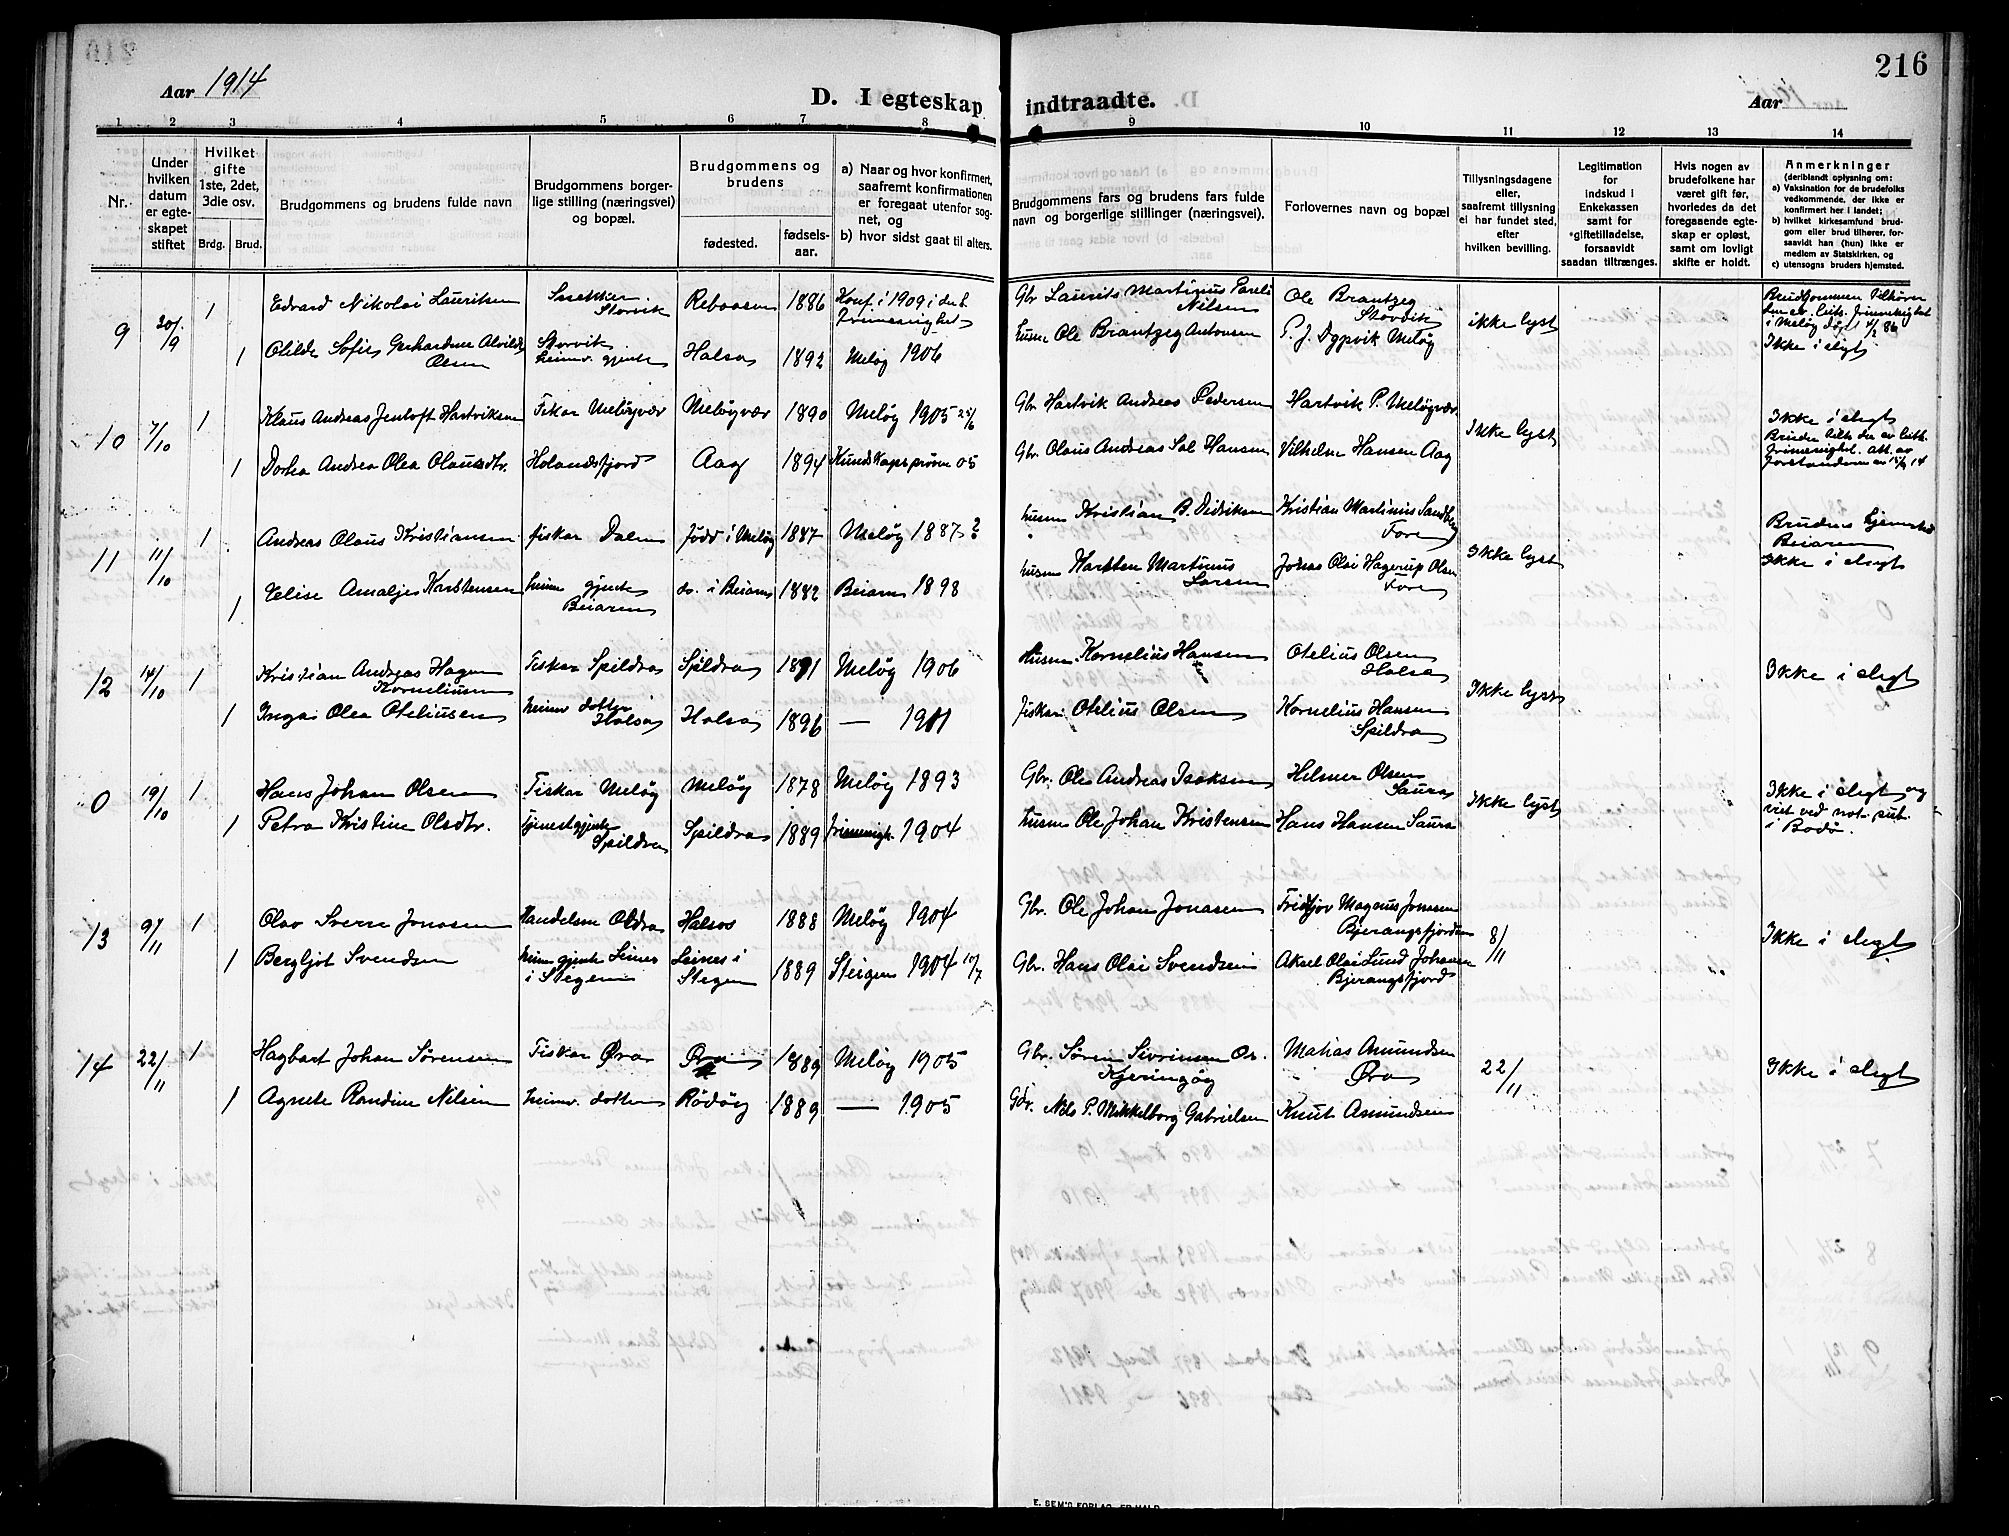 Aar 1914
D. I egteskap indtraadte.
Aar
216
1 2 3 4 5 6 7 8 9 10 11 12 13 14
Nr.
Under hvilken datum er egteskapet stiftet
Hvilket gifte 1ste, 2det, 3die osv.
Brdg. Brud.
Brudgommens og brudens fulde navn
Brudgommens borgerlige stilling (næringsvei) og bopæl.
Brudgommens og brudens
fødested.
fødselsaar.
a) Naar og hvor konfirmert, saafremt konfirmationen er foregaat utenfor sognet, og
b) hvor sidst gaat til alters.
Brudgommens fars og brudens fars fulde navn og borgerlige stillinger (næringsvei).
Forlovernes navn og bopæl
Tillysningsdagene eller, saafremt tillysning ei har fundet sted, efter hvilken bevilling.
Legitimation for indskud i Enkekassen samt for giftetilladelse, forsaavidt saadan tiltrænges.
Hvis nogen av brudefolkene har været gift før, hvorledes da det foregaaende egteskap er opløst, samt om lovligt skifte er holdt.
Anmerkninger (deriblandt oplysning om:
a) Vaksination for de brudefolks vedkommende, der ikke er konfirmert her i landet;
b) hvilket kirkesamfund brudgom eller brud tilhører, forsaavidt han (hun) ikke er medlem av Statskirken, og
c) utensogns bruders hjemsted.
9 20/9 1 Edvard Nikolai Lauritsen Snekker Storvik 1886 Konf. i 1909 i den l. frimenighet Gbr Laurits Martinus Nilsen Ole Brantzeg Storvik ikke lyst Brudgommen tilhører den ev. luth. frimenighet i Meløy døpt 4/2 86 Ikke i slegt
1 Otilde Sofie Gerhardine Alvilde Olsen Storvik heimv. gjente Halsa 1892 Meløy 1906 husm Ole Brantzeg Antonsen P. J. Dypvik Meløy
10 7/10 1 Klaus Andreas Jentoft Hartviksen Fiskar Meløyvær Meløyvær 1890 Meløy 1905 25/6 Gbr Hartvik Andreas Pedersen Hartvik P. Meløyvær Ikke lyst Ikke i slegt
1 Dorea Andrea Olea Olausdtr. Holandsfjord Aag 1894 Kundskapsprøve 05 Gbr. Olaus Andreas Sal Hansen Vilhelm Hansen Aag Bruden tilh. den ev. luth. frimenighet. Att. av forstanderen av 15/9 14
11 11/10 1 Andreas Olaus Kristiansen fiskar Dalen født i Meløy 1887 Meløy 1887? husm Kristian B. Didriksen Kristian Martinus Sandberg Fore Ikke lyst Brudens hjemsted Beiaren
1 Elise Amalje Karstensen heimv gjente Beiaren do. i Beiarn 1882 Beiarn 1898 husm Karsten Martinus Larsen Jonas Olai Hagerup Olsen Fore Ikke i slegt
12 14/10 1 Kristian Andreas Hagen Korneliussen Fiskar Spildra Spildra 1891 Meløy 1906 Husm. Kornelius Hansen Otelius Olsen Halsa Ikke lyst Ikke i slegt
1 Inga Olea Oteliusen heimv dotter Halsa Halsa 1896 — 1911 fiskar Otelius Olsen Kornelius Hansen Spildra
0 19/10 1 Hans Johan Olsen Fiskar Meløy Meløy 1878 Meløy 1893 Gbr. Ole Andreas Isaksen Helmer Olsen Saura Ikke lyst Ikke i slegt og viet ved not. put. i Bodø.
1 Petra Kristine Olsdtr. Tjenestgjente Spildra Spildra 1889 frimenigh. 1904 husm Ole Johan Kristensen Hans Hansen Saura
13 9/11 1 Olav Sverre Jonasen Handelsm Oldra Halsos 1888 Meløy 1904 Gbr. Ole Johan Jonasen Fridtjov Magnus Jonasen Bjerangsfjorden 8/11 Ikke i slegt
1 Bergljot Svendsen heimv gjente Leines i Stegen Leines i Stegen 1889 Steigen 1904 10/7 Gbr. Hans Olai Svendsen Aksel Olai Lund Johansen Bjerangsfjord
14 22/11 1 Hagbart Johan Sørensen Fiskar Ørar Øra 1889 Meløy 1905 Gbr. Søren Sivrinsen Kjeringøy Matias Amundsen Øra 22/11 Ikke i slegt
1 Agnete Randine Nilsen heimv. dotter Rødøy 1889 — 1905 Gbr. Nils P. Mikkelborg Gabrielsen Knut Amundsen
E. SEM'S FORLAG, FR.HALD